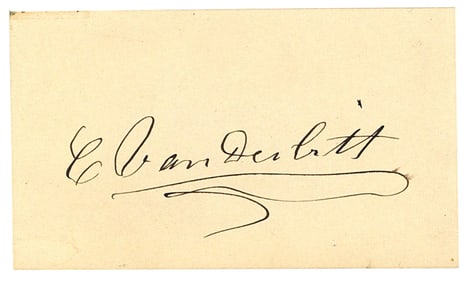 C Vanderbilt